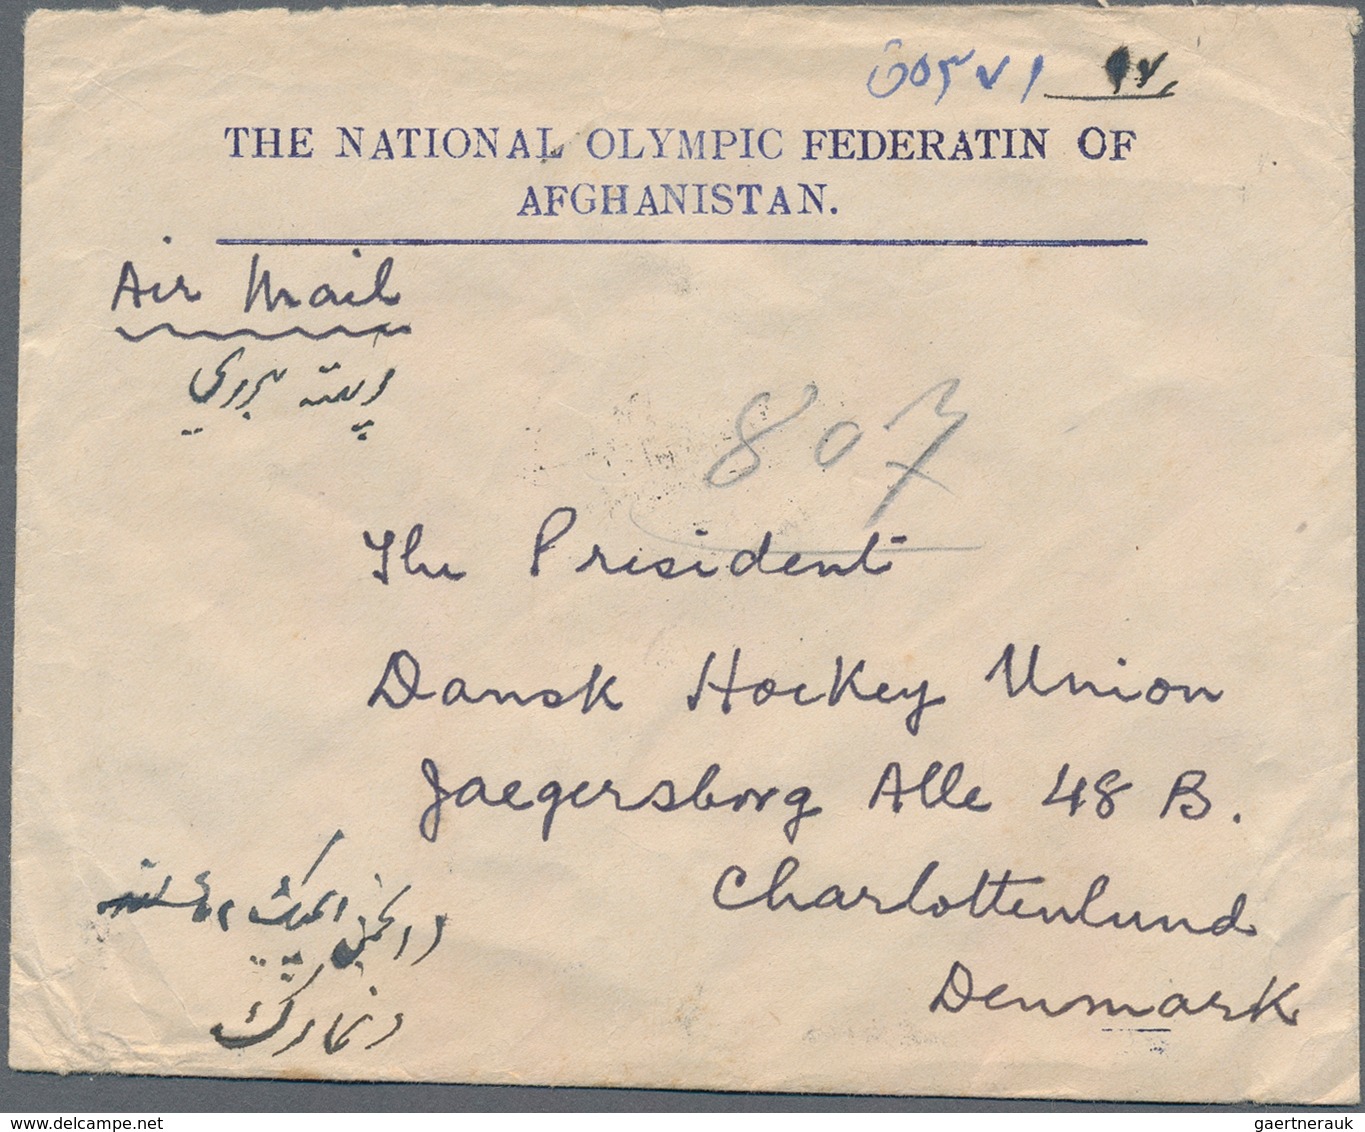 THE NATIONAL OLYMPIC FEDERATIN OF
AFGHANISTAN.
Air Mail
807
The President
Dansk Hockey Union
Jaegersborg Alle 48 B.
Charlottenlund
Denmark
دنمارک
delcampe.net
gaertnerauk